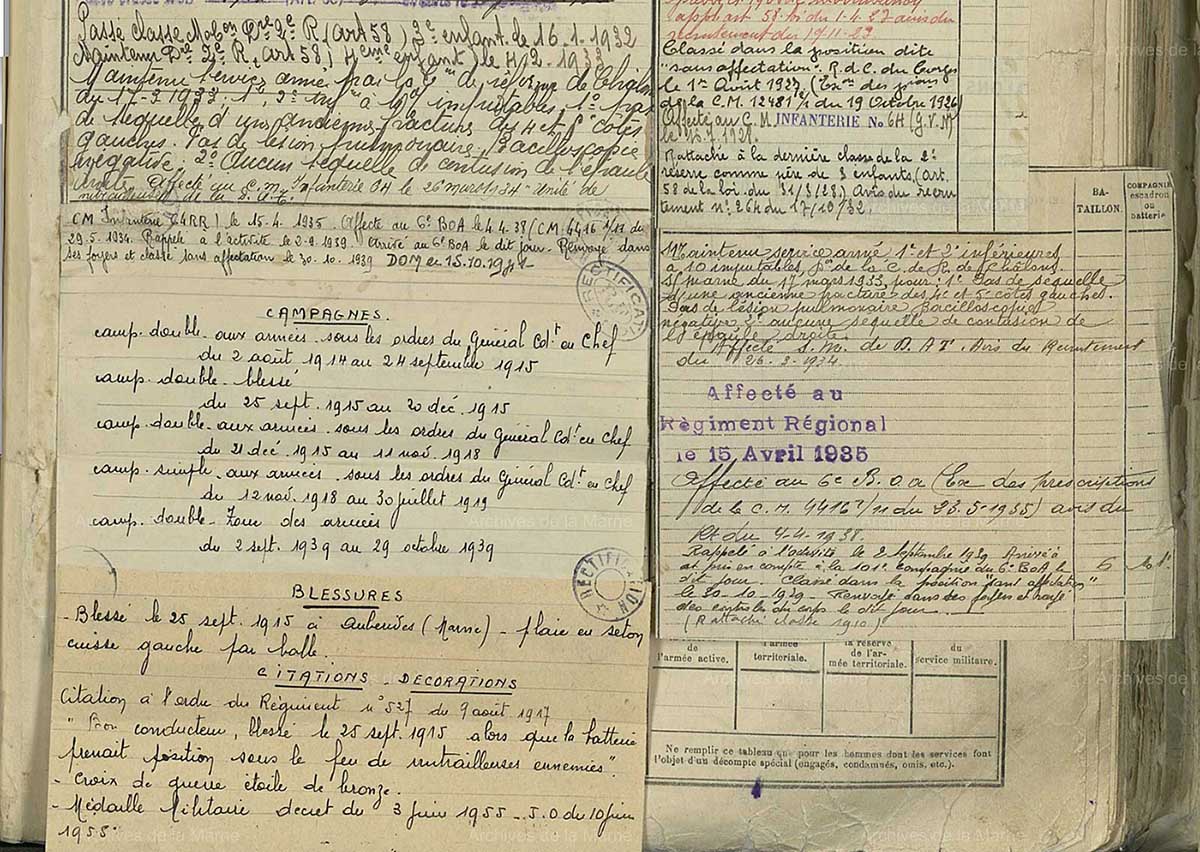 Passé classe Mob^on D^re 2^e R (art 58) 3^e enfant le 16.1.1932
Maintenu D^re 2^e R. (art 58) 4^eme enfant le 4.2.1933
Maintenu service armé par la C^on de réforme de Châlons
du 17-3-1933
de séquelle d'une ancienne fracture des 4^e et 5^e côtes
gauches. Pas de lésion pulmonaire. Bacilloscopie
négative. 2° Aucune séquelle de contusion de l'épaule
droite. Affecté au C.M. Infanterie 64 le 26 mars 1934
CM Infanterie 64RR) le 15.4.1935. Affecté au 6^e BOA le 4.4.38 (CM 4416 1/11 du
29.5.1934. Rappelé à l'activité le 2.9.1939. Arrivé au 6^e BOA le dit jour. Renvoyé dans
ses foyers et classé sans affectation le 30.10.1939
CAMPAGNES.
camp. double. aux armées sous les ordres du Général Cd^t en Chef
du 2 août 1914 au 24 septembre 1915
camp. double. blessé
du 25 sept. 1915 au 20 déc. 1915
camp. double. aux armées sous les ordres du Général Cd^t en Chef
du 21 déc. 1915 au 11 nov. 1918
camp. simple. aux armées sous les ordres du Général Cd^t en Chef
du 12 nov. 1918 au 30 juillet 1919
camp. double. Zone des armées
du 2 sept. 1939 au 29 octobre 1939
RECTIFICATION
RECTIFICATION
BLESSURES
- Blessé le 25 sept. 1915 à Auberives (Marne) - plaie en séton
cuisse gauche par balle.
CITATIONS - DECORATIONS
Citation à l'ordre du Régiment n° 527 du 9 août 1917
"Bon conducteur, blessé le 25 sept. 1915 alors que la batterie
prenait position sous le feu de mitrailleuses ennemies".
- Croix de guerre étoile de bronze.
- Médaille Militaire décret du 3 juin 1955 - J.O du 10 juin
1955
recrutement du 19.11.27
Classé dans la position dite
"sans affectation". R.d.C. du Corps
le 1^er Avril 1927
de la C.M. 12481 du 19 Octobre 1926
Affecté au C.M INFANTERIE N° 64 (G.V.N)
Rattaché à la dernière classe de la 2^e
réserve comme père de 3 enfants, (art.
58 de la loi du 31/3/28). Avis du recru
tement n° 264 du 17/10/32.
BA-
TAILLON.
COMPAGNIE
escadron
ou
batterie
Maintenu service armé 1° et 2° inférieures
à 10 imputables, P^on de la C. de R. de Châlons
S/ marne du 17 mars 1933, pour: 1° Pas de séquelle
d'une ancienne fracture des 4^e et 5^e côtes gauches.
Pas de lésion pulmonaire Bacilloscopie
négative 2° aucune séquelle de contusion de
l'épaule droite.
Affecté S. M. de D.A.T. Avis du Recrutement
du 26-3-1934.
Affecté au
Règiment Régional
le 15 Avril 1935
Affecté au 6^e B.O.A (Ex des prescriptions
de la C.M. 4416 1/11 du 23.5.1935) avis du
Rt du 4-4-1938.
Rappelé à l'activité le 2 Septembre 1939 Arrivé à
et pris en compte à la 101^e Compagnie du 6^e BOA le
dit jour. Classé dans la position "sans affectation"
le 30-10-1939 - Renvoyé dans ses foyers et rayé
des contrôles du corps le dit jour.
(Rattaché classe 1910)
6
de
l'armée active.
l'armée
territoriale.
la réserve
de l'ar-
mée territoriale.
du
service militaire.
Ne remplir ce tableau que pour les hommes dont les services font
l'objet d'un décompte spécial (engagés, condamnés, omis, etc.).
Archives de la Marne